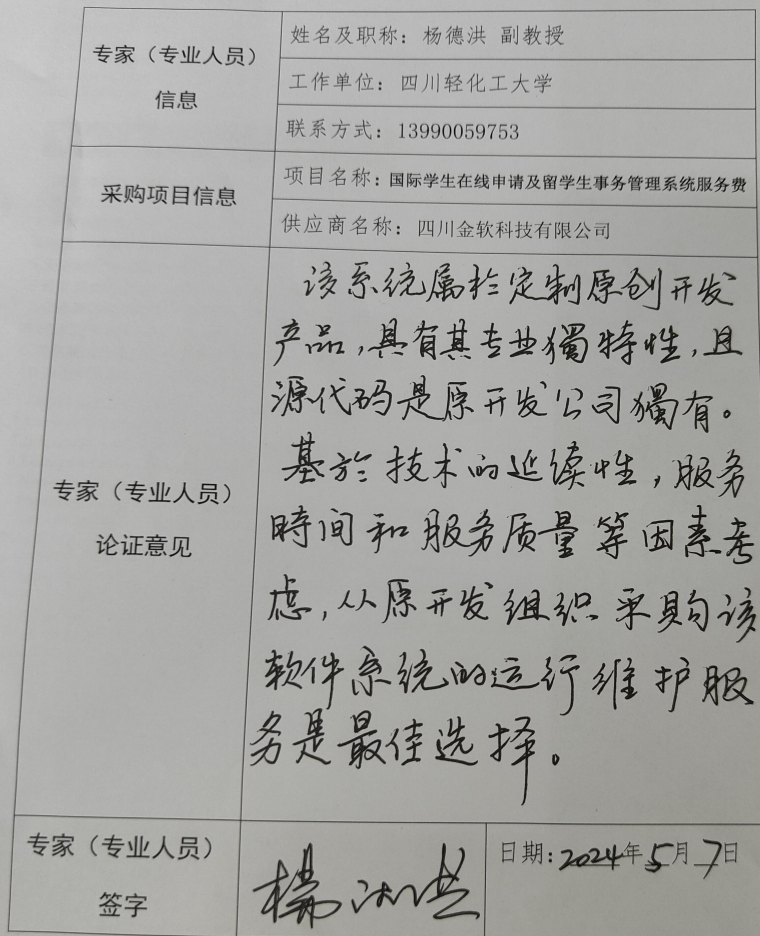 专家（专业人员）
信息
姓名及职称：杨德洪 副教授
工作单位：四川轻化工大学
联系方式：13990059753
采购项目信息
项目名称：国际学生在线申请及留学生事务管理系统服务费
供应商名称：四川金软科技有限公司
专家（专业人员）
论证意见
该系统属於定制原创开发
产品，具有其专业獨特性，且
源代码是原开发公司獨有。
基於技术的延续性，服务
時间和服务质量等因素考
虑，从原开发组织采购该
软件系统的运行维护服
务是最佳选择。
专家（专业人员）
签字
杨德洪
日期：2024年5月7日